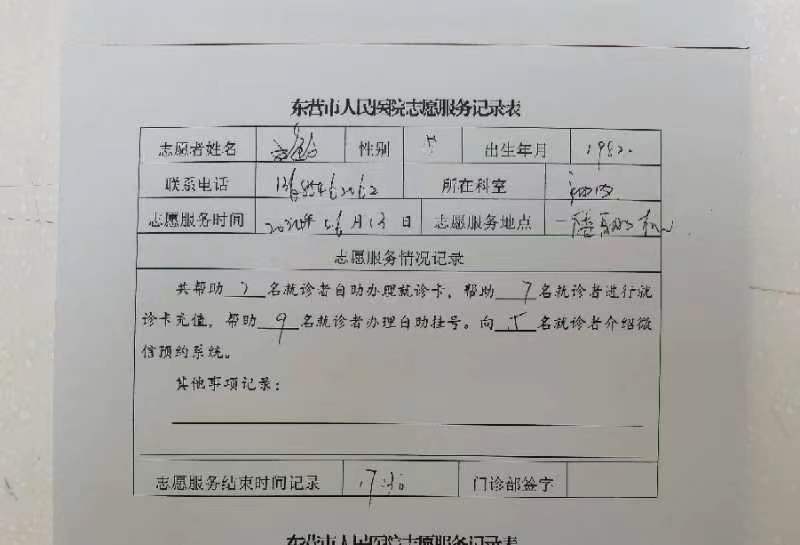 东营市人民医院志愿服务记录表
志愿者姓名 性别 出生年月 1982.
联系电话 所在科室
志愿服务时间 月13日 志愿服务地点 一楼
志愿服务情况记录
共帮助 名就诊者自助办理就诊卡，帮助7名就诊者进行就
诊卡充值，帮助9名就诊者办理自助挂号。向5名就诊者介绍微
信预约系统。
其他事项记录：
志愿服务结束时间记录 17:30 门诊部签字
东营市人民医院志愿服务记录表